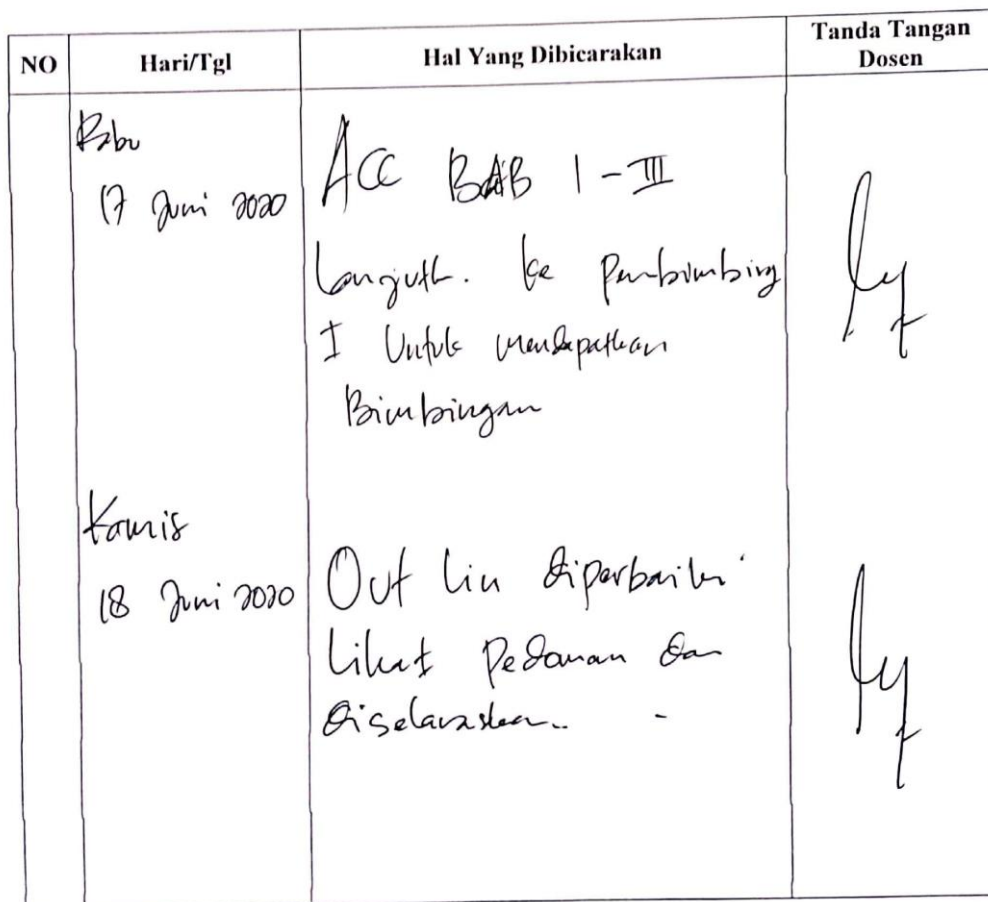 NO Hari/Tgl Hal Yang Dibicarakan Tanda Tangan
Dosen
Rabu
17 Juni 2020
ACC BAB I - III
Lanjutk. ke Pembimbing
I Untuk mendapatkan
Bimbingan
Kamis
18 Juni 2020
Out Lin diperbaiki
Lihat Pedoman dan
diselaraskan..